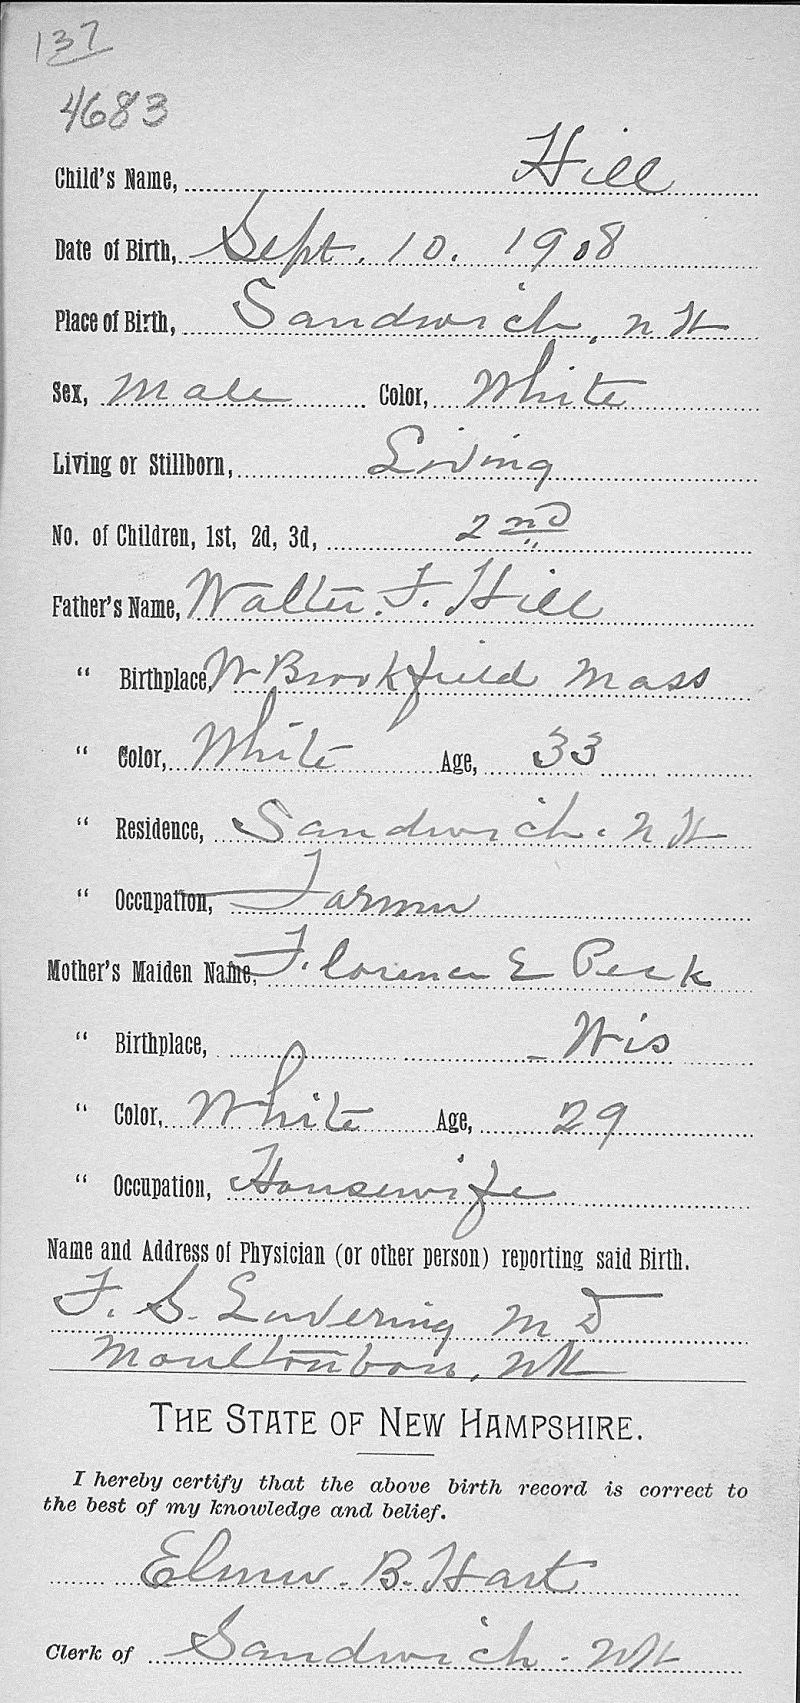 137
4683
Child's Name, Hill
Date of Birth, Sept. 10. 1908
Place of Birth, Sandwich, N H
Sex, Male Color, White
Living or Stillborn, Living
No. of Children, 1st, 2d, 3d, 2nd
Father's Name, Walter. F. Hill
" Birthplace, W Brookfield Mass
" Color, White Age, 33
" Residence, Sandwich. N H
" Occupation, Farmer
Mother's Maiden Name, Florence E Peck
" Birthplace, Wis
" Color, White Age, 29
" Occupation, Housewife
Name and Address of Physician (or other person) reporting said Birth.
F. S. Lovering M D
Moultonboro, NH
THE STATE OF NEW HAMPSHIRE.
I hereby certify that the above birth record is correct to
the best of my knowledge and belief.
Elmer. B. Hart
Clerk of Sandwich. NH